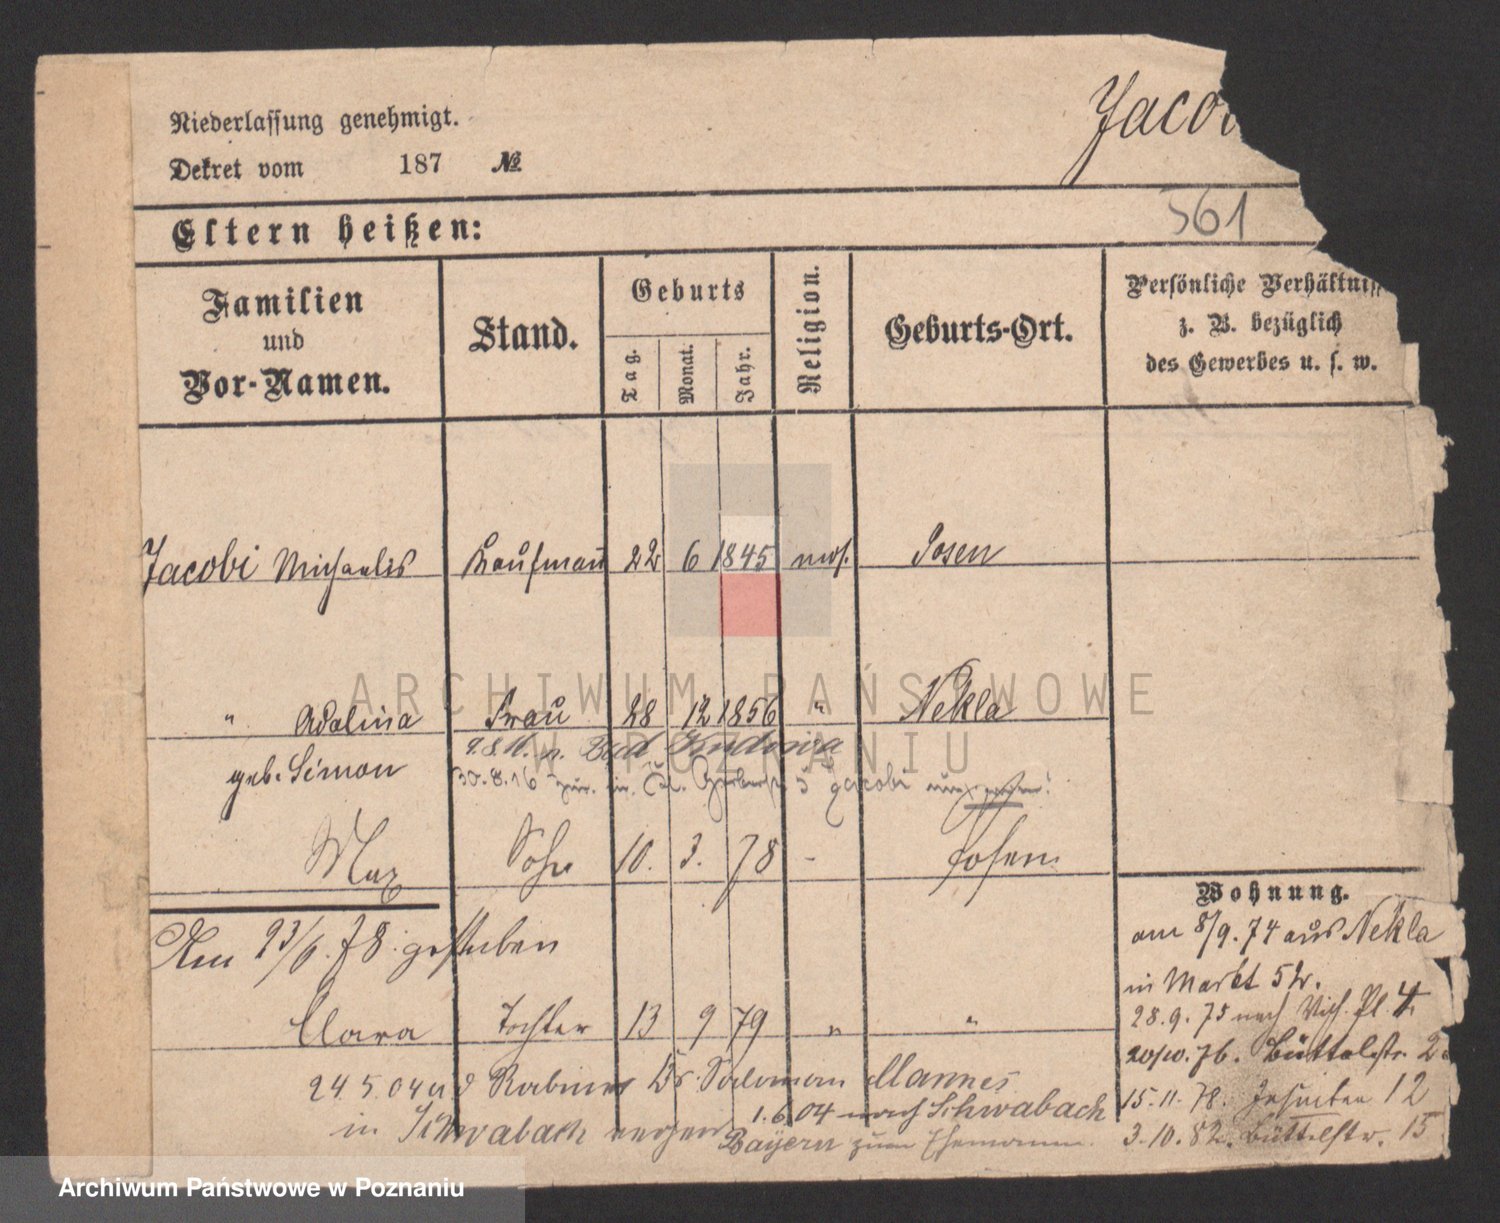 Niederlassung genehmigt.
Jacob
Dekret vom 187 №
561
Eltern heißen:
Familien und Vor-Namen.
Stand.
Geburts
Tag.
Monat.
Jahr.
Religion.
Geburts-Ort.
Persönliche Verhältniss
z. B. bezüglich
des Gewerbes u. s. w.
Jacobi Michaelis Kaufmann 22 6 1845 mos. Posen
" Adolina Frau 28 12 1856 " Nekla
geb. Simon
n. Bad Kudowa
30.8.16 zur. in Jacobi
Max Sohn 10. 3. 78 - Posen
Am 23/6. 78. gestorben
Clara Tochter 13 9 79 " "
24.5.04 Rabiner Dr. Salomon Mannes
in Schwabach
1.6.04 nach Schwabach
Bayern zum Ehemann.
Wohnung.
am 8/9. 74 aus Nekla
in Markt 52.
28.9.75 nach Pl. 4
20/10.76. Büttelstr. 2
15.11.78. Jesuiten 12
3.10.82. Büttelstr. 15
ARCHIWUM PAŃSTWOWE
W POZNANIU
Archiwum Państwowe w Poznaniu